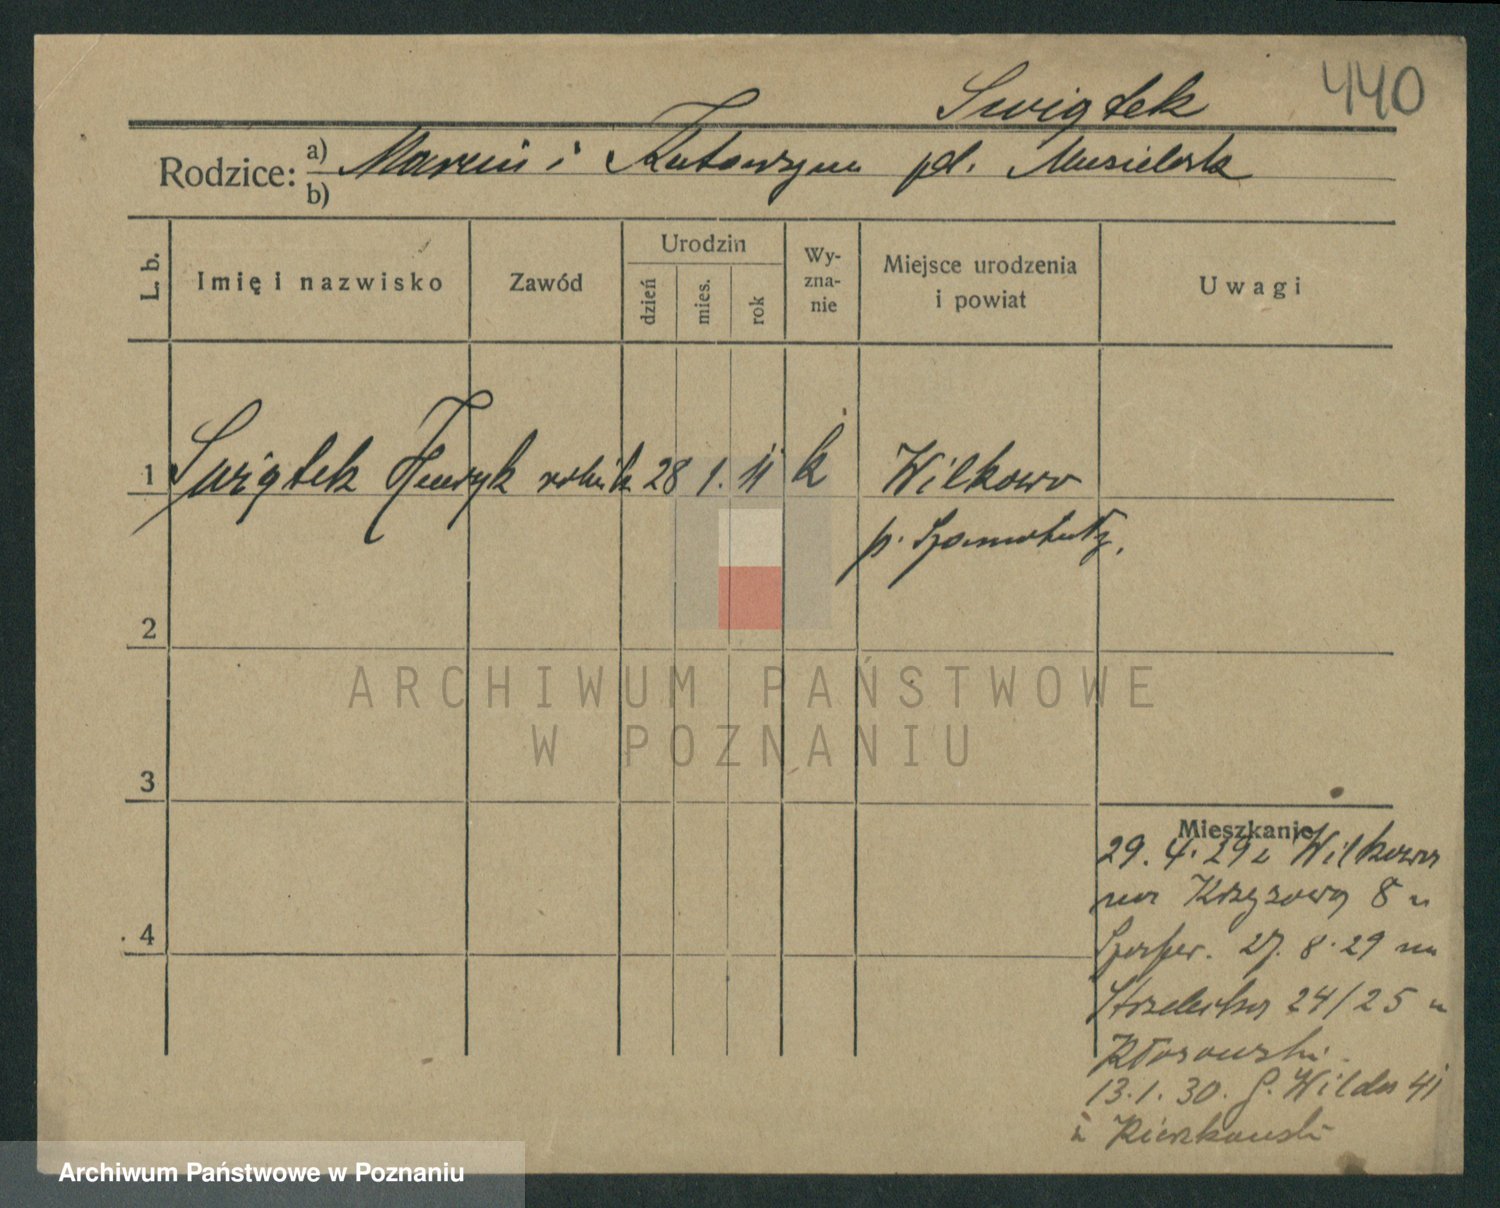 440
Swiątek
Rodzice: a) Marcin i Katarzyna pd. Musielska
b)
L. b.
Imię i nazwisko
Zawód
Urodzin
dzień
mies.
rok
Wy-
zna-
nie
Miejsce urodzenia
i powiat
Uwagi
1 Swiątek Henryk rolnik 28 1. 11 k Wilkowo
p. Szamotuły.
2
3
4
Mieszkanie
29. 4. 29 z Wilkowa
na Krzyzową 8 u
27. 8. 29 na
Strzelecka 24/25 u
Kłosowski
13. 1. 30. G. Wilda 41
u
ARCHIWUM PAŃSTWOWE
W POZNANIU
Archiwum Państwowe w Poznaniu